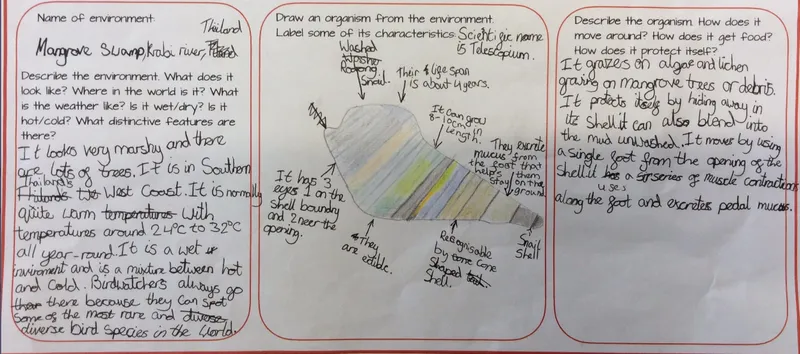 Name of environment:
Thailand
Mangrove Swamp, Krabi river,
Describe the environment. What does it
look like? Where in the world is it? What
is the weather like? Is it wet/dry? Is it
hot/cold? What distinctive features are
there?
It looks very marshy and there
are lots of trees. It is in Southern
Thailand's
West Coast. It is normally
quite warm temperatures with
temperatures around 24°C to 32°C
all year-round. It is a wet
invironment and is a mixture between hot
and cold. Birdwatchers always go
there because they can spot
some of the most rare and diverse
diverse bird species in the world.
Draw an organism from the environment.
Label some of its characteristics.
Scientific name
is Telescopium.
Washed
Snail.
Their life span
is about 4 years.
It can grow
8-10cm in
length.
They excrete
mucus from
the foot that
helps them
stay on the
ground.
It has 3
eyes 1 on the
shell boundry
and 2 neer the
opening.
They
are edible.
Recognisable
by cone
shaped
shell.
Snail
Shell
Describe the organism. How does it
move around? How does it get food?
How does it protect itself?
It grazes on algae and lichen
growing on mangrove trees or debris.
It protects itself by hiding away in
its shell it can also blend into
the mud unwashed. It moves by using
a single foot from the opening of the
shell it uses a series of muscle contractions
along the foot and excretes pedal mucus.